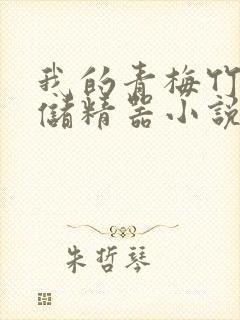 我的青梅竹
儲精器小說
朱哲琴